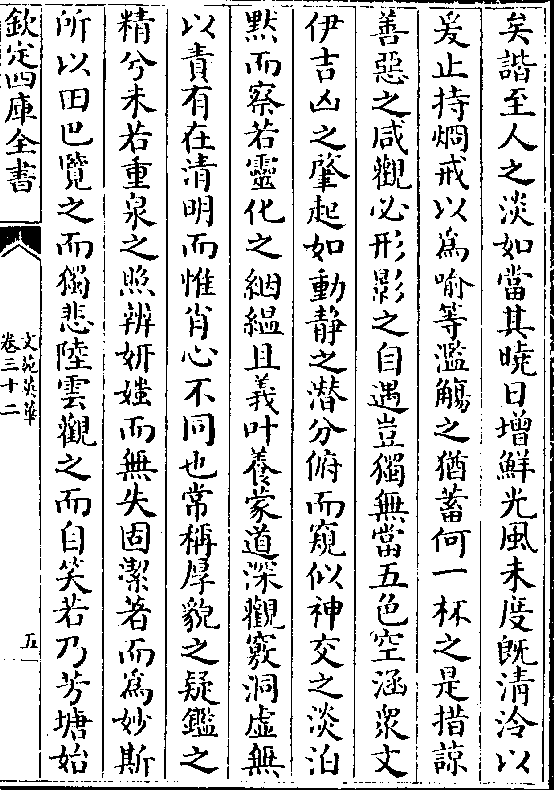 矣諧至人之淡如當其曉日增鮮光風未度既清泠以
爰止持烱戒以為喻等濫觴之猶蓄何一杯之是措諒
善惡之咸觀必形影之自遇豈獨無當五色空涵衆文
伊吉凶之肇起如動静之潜分俯而窺似神交之淡泊
黙而察若靈化之絪緼且義叶養蒙道深觀竅洞虚無
以責有在清明而惟肖心不同也常稱厚貌之疑鑑之
精兮未若重泉之照辨妍媸而無失固潔著而為妙斯
所以田巴覽之而獨悲陸雲觀之而自笑若乃芳塘始
欽定四庫全書
文苑英華
卷三十二
五